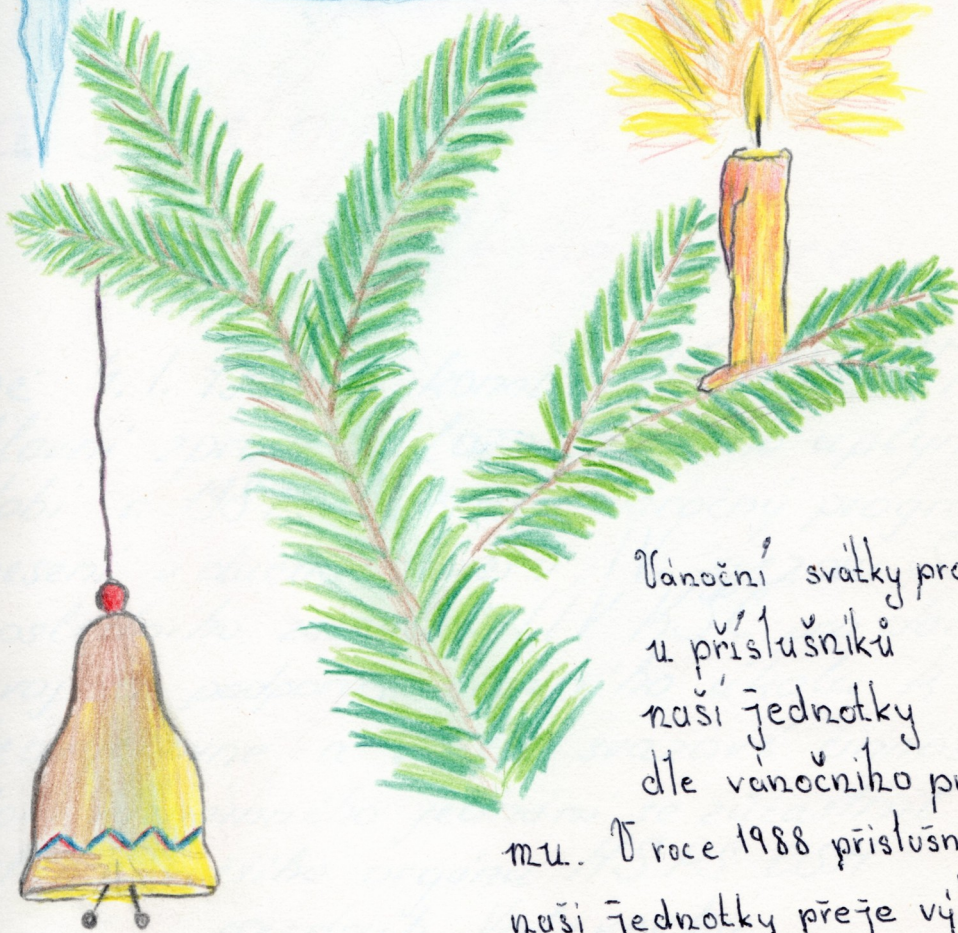 Vánoční svátky pro
u příslušníků
naší jednotky
dle vánočního pr
mu. V roce 1988 přislušn
naši jednotky přeje vý